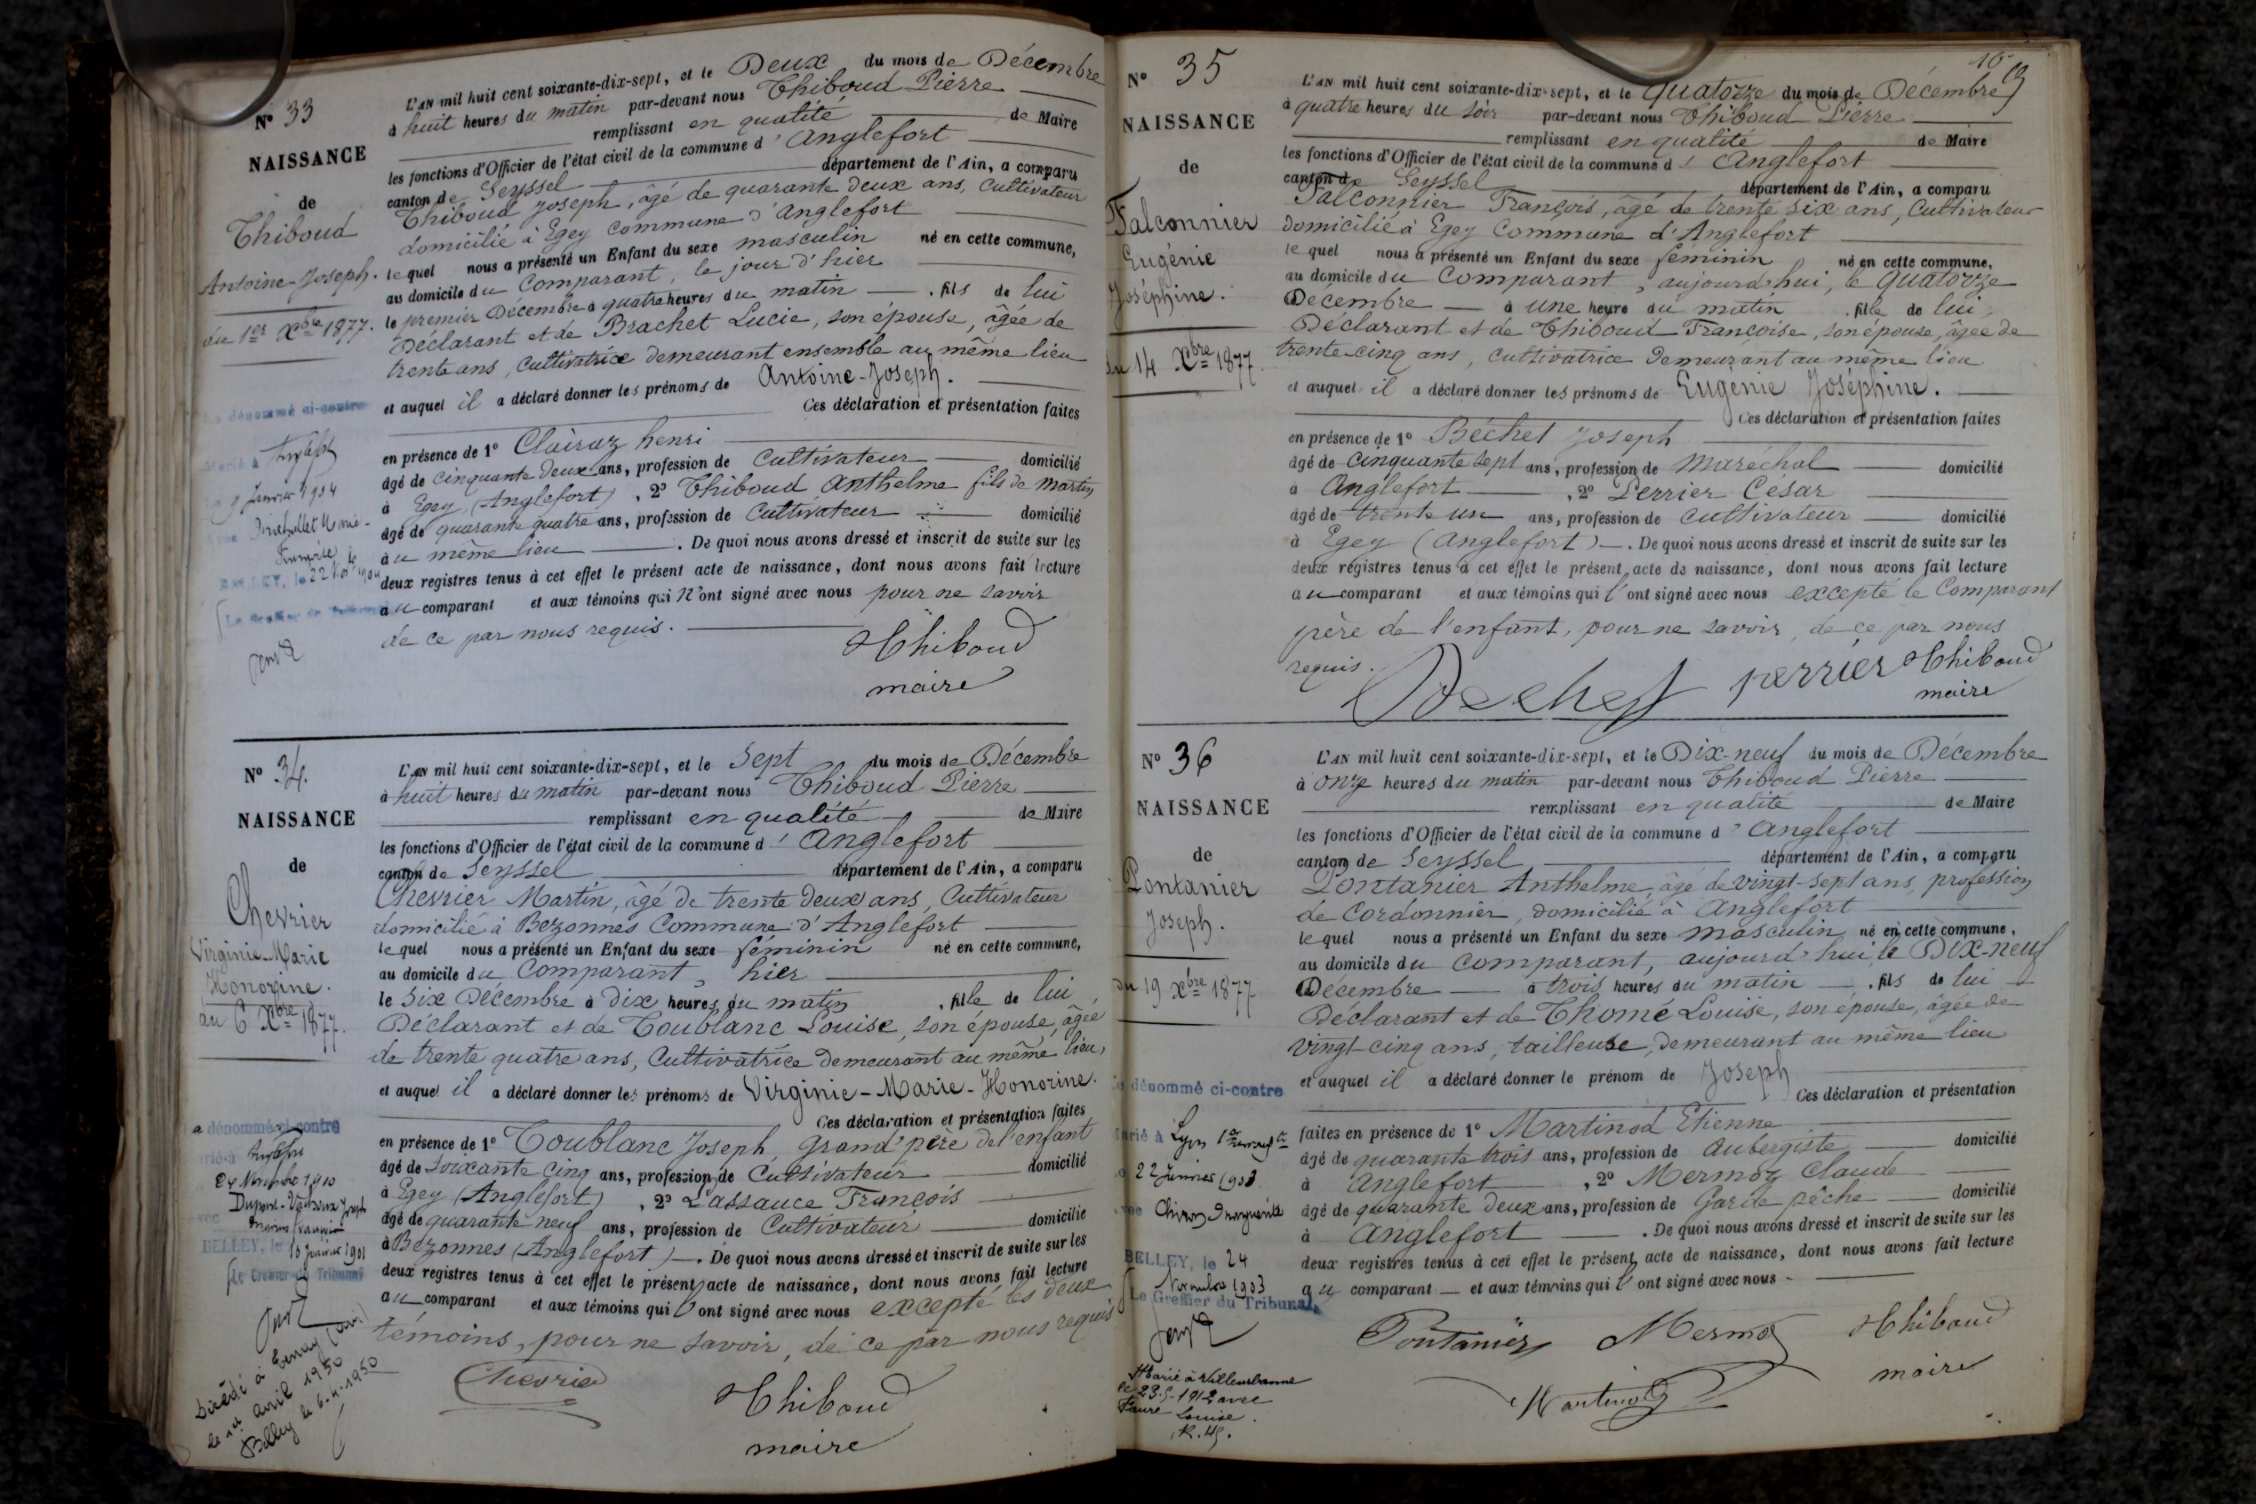 N° 33
NAISSANCE
de
Thiboud
Antoine-Joseph.
du 1er Xbre 1877.
dénommé ci-contre
Anglefort
9 Janvier 1904
Marie-
BELLEY, le 22
Le Greffier du Tribunal
L'AN mil huit cent soixante-dix-sept, et le Deux du mois de Décembre
à huit heures du matin par-devant nous Thiboud Pierre
remplissant en qualité de Maire
les fonctions d'Officier de l'état civil de la commune d'Anglefort
canton de Seyssel département de l'Ain, a comparu
Thiboud Joseph, âgé de quarante deux ans, Cultivateur
domicilié à Egey Commune d'Anglefort
lequel nous a présenté un Enfant du sexe masculin né en cette commune,
au domicile du Comparant, le jour d'hier
le premier Décembre à quatre heures du matin . fils de lui
Déclarant et de Brachet Lucie, son épouse, âgée de
trente ans, Cultivatrice demeurant ensemble au même lieu
et auquel il a déclaré donner les prénoms de Antoine-Joseph.
Ces déclaration et présentation faites
en présence de 1° Clairaz henri
âgé de cinquante deux ans, profession de Cultivateur domicilié
à Egey (Anglefort), 2° Thiboud Anthelme fils de Martin
âgé de quarante quatre ans, profession de Cultivateur domicilié
au même lieu . De quoi nous avons dressé et inscrit de suite sur les
deux registres tenus à cet effet le présent acte de naissance, dont nous avons fait lecture
au comparant et aux témoins qui n'ont signé avec nous pour ne savoir
de ce par nous requis.
Thiboud
maire
N° 34.
NAISSANCE
de
Chevrier
Virginie-Marie
Honorine.
du 6 Xbre 1877.
dénommé ci-contre
Anglefort
24 Novembre 1900
BELLEY, le 10 Janvier 1901
Le Greffier du Tribunal
Décédé à
le 1er avril 1950
Belley le 6.4.1950
L'AN mil huit cent soixante-dix-sept, et le Sept du mois de Décembre
à huit heures du matin par-devant nous Thiboud Pierre
remplissant en qualité de Maire
les fonctions d'Officier de l'état civil de la commune d'Anglefort
canton de Seyssel département de l'Ain, a comparu
Chevrier Martin, âgé de trente deux ans, Cultivateur
domicilié à Bezonnes Commune d'Anglefort
lequel nous a présenté un Enfant du sexe féminin né en cette commune,
au domicile du Comparant, hier
le six Décembre à Dix heures du matin . fille de lui,
Déclarant et de Toublanc Louise, son épouse, âgée
de trente quatre ans, Cultivatrice demeurant au même lieu,
et auquel il a déclaré donner les prénoms de Virginie-Marie-Honorine.
Ces déclaration et présentation faites
en présence de 1° Toublanc Joseph, Grand'père de l'enfant
âgé de soixante cinq ans, profession de Cultivateur domicilié
à Egey (Anglefort), 2° Lassauce François
âgé de quarante neuf ans, profession de Cultivateur domicilié
à Bezonnes (Anglefort). De quoi nous avons dressé et inscrit de suite sur les
deux registres tenus à cet effet le présent acte de naissance, dont nous avons fait lecture
au comparant et aux témoins qui l'ont signé avec nous excepté les deux
témoins, pour ne savoir, de ce par nous requis
Chevrier
Thiboud
maire
N° 35
NAISSANCE
de
Falconnier
Eugénie
Joséphine.
du 14 Xbre 1877.
L'AN mil huit cent soixante-dix-sept, et le Quatorze du mois de Décembre
à quatre heures du soir par-devant nous Thiboud Pierre
remplissant en qualité de Maire
les fonctions d'Officier de l'état civil de la commune d'Anglefort
canton de Seyssel département de l'Ain, a comparu
Falconnier François, âgé de trente six ans, Cultivateur
domicilié à Egey Commune d'Anglefort
lequel nous a présenté un Enfant du sexe féminin né en cette commune,
au domicile du Comparant, aujourd'hui, le Quatorze
Décembre à une heure du matin . fille de lui,
Déclarant et de Thiboud Françoise, son épouse, âgée de
trente-cinq ans, Cultivatrice demeurant au même lieu
et auquel il a déclaré donner les prénoms de Eugénie Joséphine.
Ces déclaration et présentation faites
en présence de 1° Béchet Joseph
âgé de cinquante sept ans, profession de Maréchal domicilié
à Anglefort, 2° Perrier César
âgé de trente un ans, profession de Cultivateur domicilié
à Egey (Anglefort). De quoi nous avons dressé et inscrit de suite sur les
deux registres tenus à cet effet le présent acte de naissance, dont nous avons fait lecture
au comparant et aux témoins qui l'ont signé avec nous excepté le Comparant
père de l'enfant, pour ne savoir, de ce par nous
requis.
Bechet perrier Thiboud
maire
N° 36
NAISSANCE
de
Pontanier
Joseph.
du 19 Xbre 1877
dénommé ci-contre
Marié à Lyon
le 22 Janvier 1903
BELLEY, le 24
Novembre 1903
Le Greffier du Tribunal,
Marié à Villeurbanne
le 23-5-1912 avec
Faure Louise.
L'AN mil huit cent soixante-dix-sept, et le Dix-neuf du mois de Décembre
à onze heures du matin par-devant nous Thiboud Pierre
remplissant en qualité de Maire
les fonctions d'Officier de l'état civil de la commune d'Anglefort
canton de Seyssel département de l'Ain, a comparu
Pontanier Anthelme, âgé de vingt-sept ans, profession
de Cordonnier, domicilié à Anglefort
lequel nous a présenté un Enfant du sexe masculin né en cette commune,
au domicile du comparant, aujourd'hui, le Dix-neuf
Décembre à trois heures du matin . fils de lui
Déclarant et de Thomé Louise, son épouse, âgée de
vingt-cinq ans, tailleuse, demeurant au même lieu
et auquel il a déclaré donner le prénom de Joseph
Ces déclaration et présentation
faites en présence de 1° Martinod Etienne
âgé de quarante trois ans, profession de Aubergiste domicilié
à Anglefort, 2° Mermoz Claude
âgé de quarante deux ans, profession de Garde pêche domicilié
à Anglefort . De quoi nous avons dressé et inscrit de suite sur les
deux registres tenus à cet effet le présent acte de naissance, dont nous avons fait lecture
au comparant et aux témoins qui l'ont signé avec nous
Pontanier Mermoz Thiboud
Martinod maire